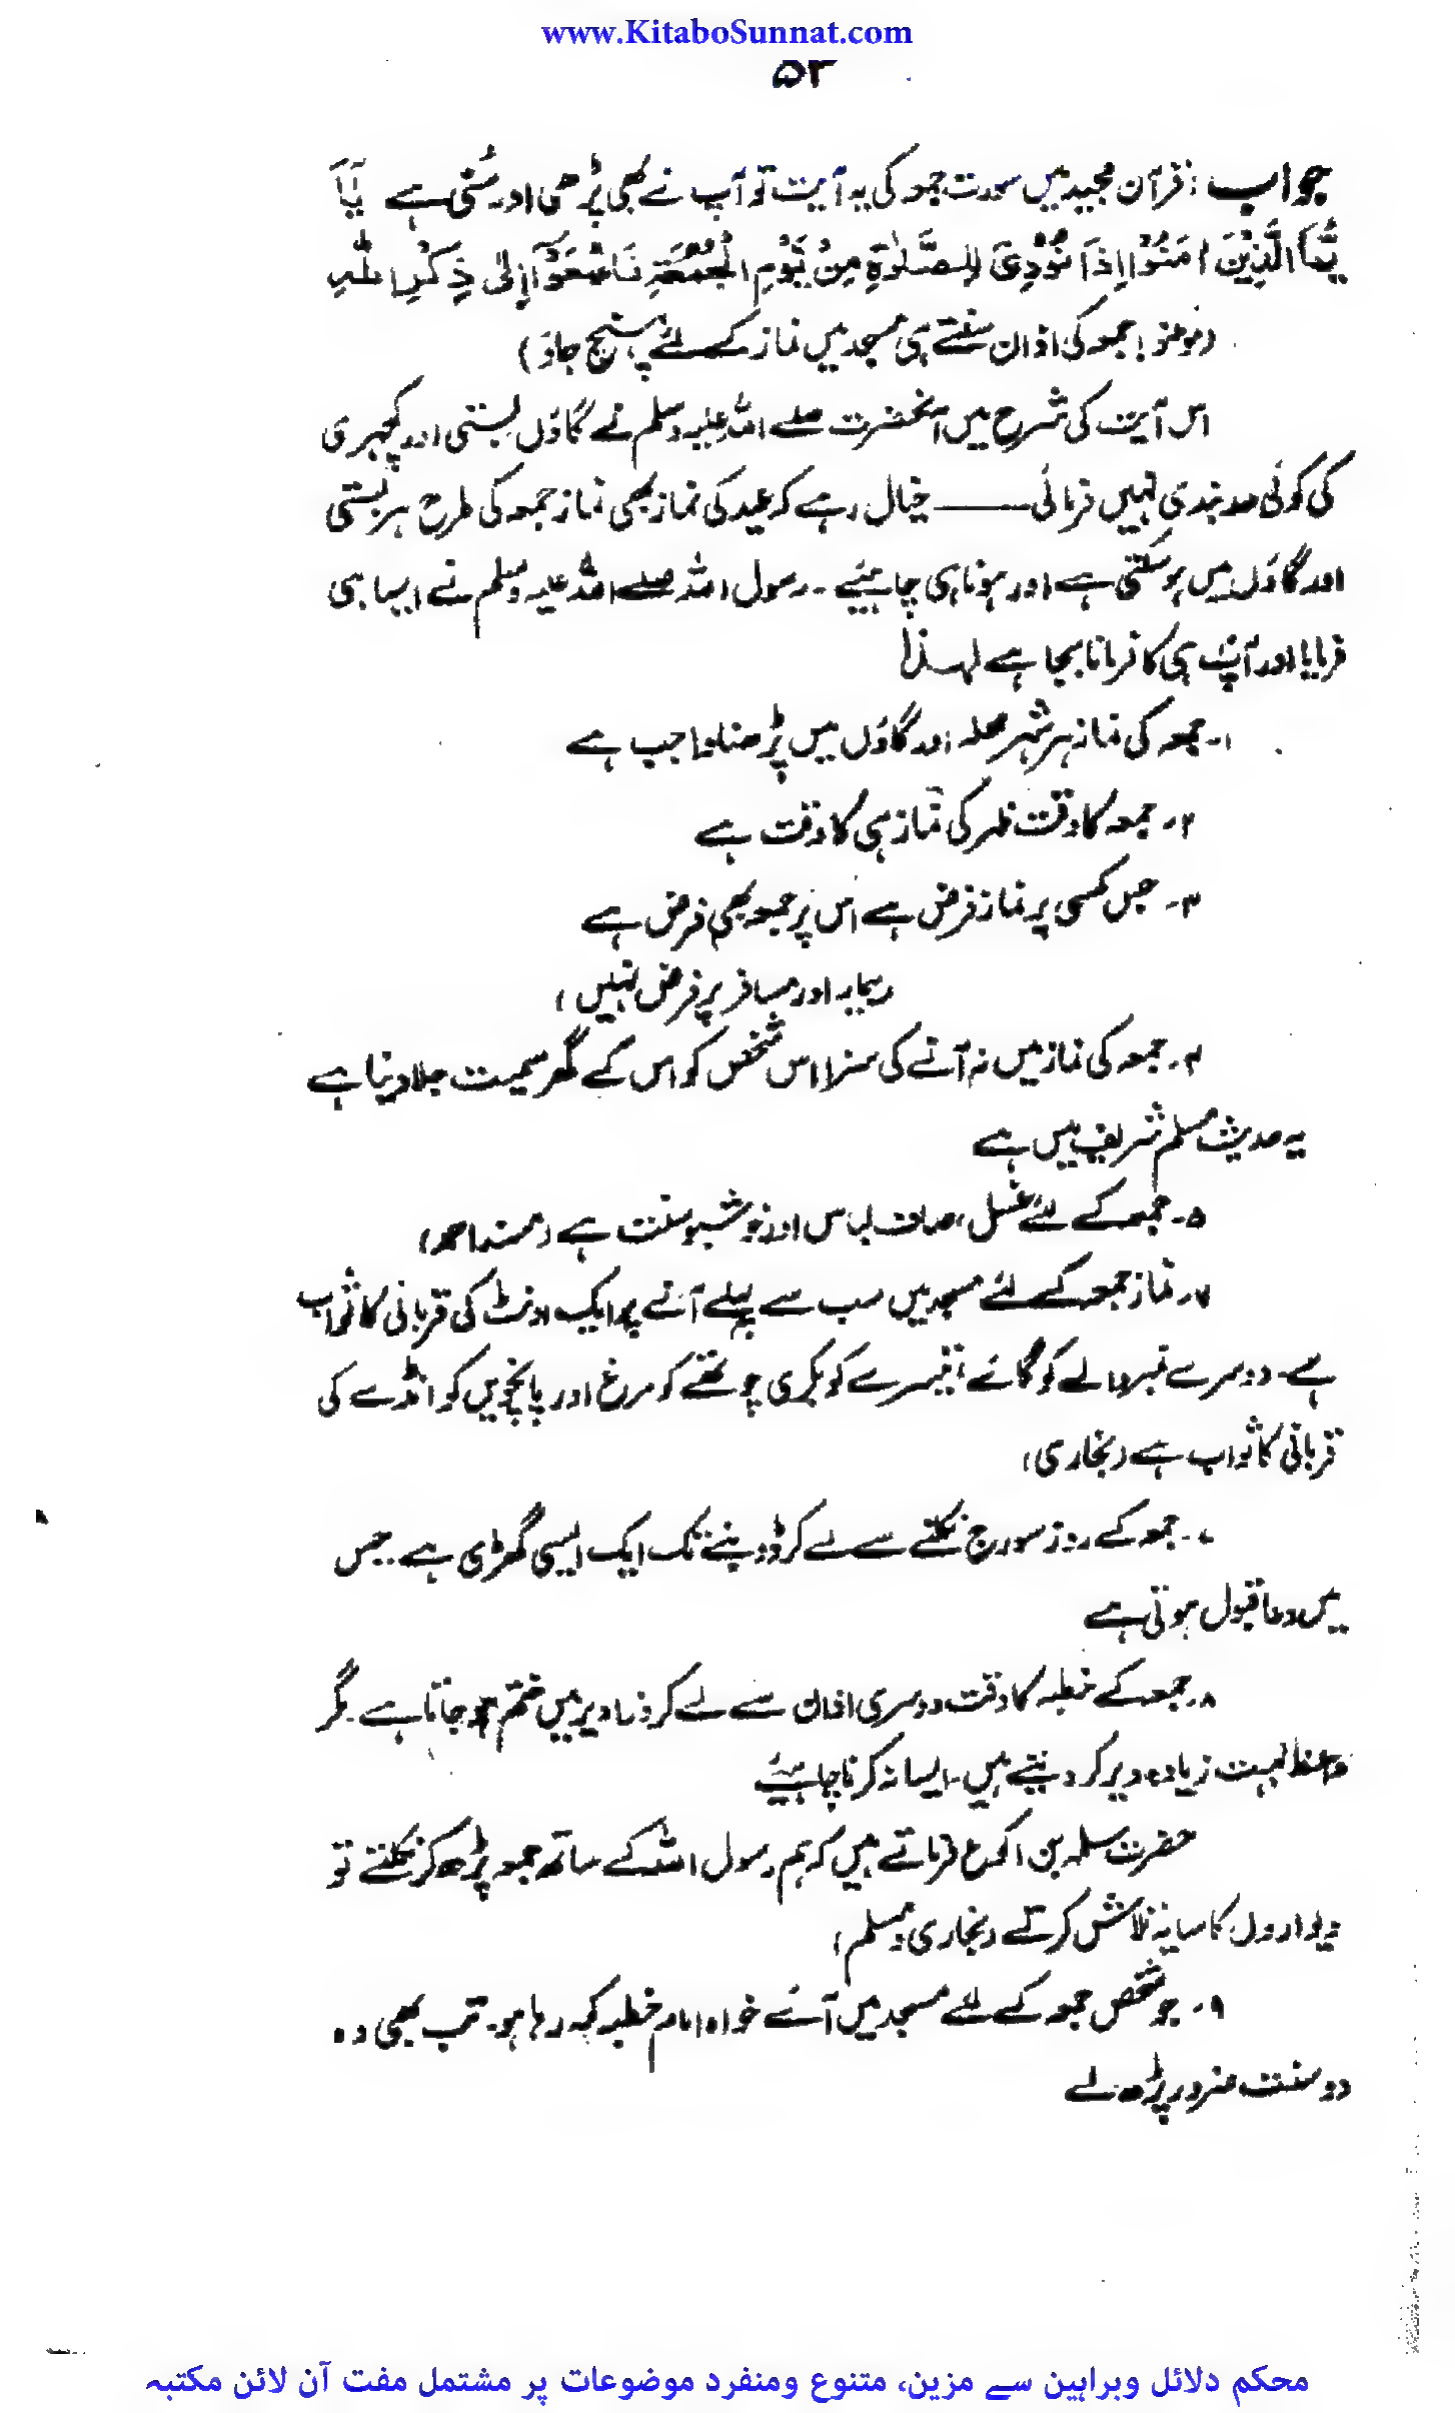 www.KitaboSunnat.com
۵۲
جواب : قرآن مجید میں سورت جمعہ کی یہ آیت تو آپ نے بھی پڑھی اور سُنی ہے یٰۤاَ
یُّھَا الَّذِیْنَ اٰمَنُوْا اِذَا نُوْدِیَ لِلصَّلٰوۃِ مِنْ یَّوْمِ الْجُمُعَۃِ فَاسْعَوْا اِلیٰ ذِکْرِ اللّٰہِ
(مومنو! جمعہ کی اذان سنتے ہی مسجد میں نماز کے لئے پہنچ جاؤ)
اس آیت کی شرح میں آنحضرت صلے اللہ علیہ وسلم نے گاؤں بستی اور کچہری
کی کوئی حد بندی نہیں فرمائی ــــــ خیال رہے کہ عید کی نماز بھی نماز جمعہ کی طرح ہر بستی
اور گاؤں میں ہو سکتی ہے اور ہونا ہی چاہیئے ۔ رسول اللہ صلے اللہ علیہ وسلم نے ایسا ہی
فرمایا اور آپؐ ہی کا فرمانا بجا ہے لہذا
۱۔ جمعہ کی نماز ہر شہر محلہ اور گاؤں میں پڑھنا واجب ہے
۲۔ جمعہ کا وقت ظہر کی نماز ہی کا وقت ہے
۳۔ جس کسی پر نماز فرض ہے اس پر جمعہ بھی فرض ہے
(بیمار اور مسافر پر فرض نہیں)
۴۔ جمعہ کی نماز میں نہ آنے کی سزا اس شخص کو اس کے گھر سمیت جلا دینا ہے
یہ حدیث مسلم شریف میں ہے
۵۔ جمعہ کے لئے غسل ، صاف لباس اور خوشبو سنت ہے (مسند احمد)
۶۔ نماز جمعہ کے لئے مسجد میں سب سے پہلے آنے پر ایک اونٹ کی قربانی کا ثواب
ہے۔ دوسرے نمبر والے کو گائے ، تیسرے کو بکری چوتھے کو مرغ اور پانچویں کو انڈے کی
قربانی کا ثواب ہے (بخاری)
۷۔ جمعہ کے روز سورج نکلتے سے لے کر ڈوبنے تک ایک ایسی گھڑی ہے۔ جس
میں دعا قبول ہوتی ہے
۸۔ جمعہ کے خطبہ کا وقت دوسری اذان سے لے کر ذرا دیر میں ختم ہو جاتا ہے۔ مگر
واعظ بہت زیادہ دیر کر دیتے ہیں۔ ایسا نہ کرنا چاہیئے
حضرت سلمہ بن اکوع فرماتے ہیں کہ ہم رسول اللہ کے ساتھ جمعہ پڑھ کر نکلتے تو
دیواروں کا سایہ تلاش کرتے (بخاری و مسلم)
۹۔ جو شخص جمعہ کے لئے مسجد میں آئے خواہ امام خطبہ کہہ رہا ہو۔ تب بھی وہ
دو سنت ضرور پڑھ لے
محکم دلائل وبراہین سے مزین، متنوع ومنفرد موضوعات پر مشتمل مفت آن لائن مکتبہ